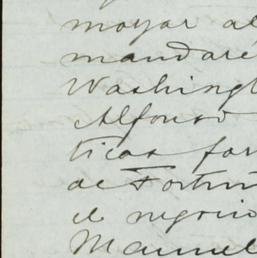 mayor al
mandaré
Washingt
Alfonso
ticas for
de Fortun
el negocio
Manuel